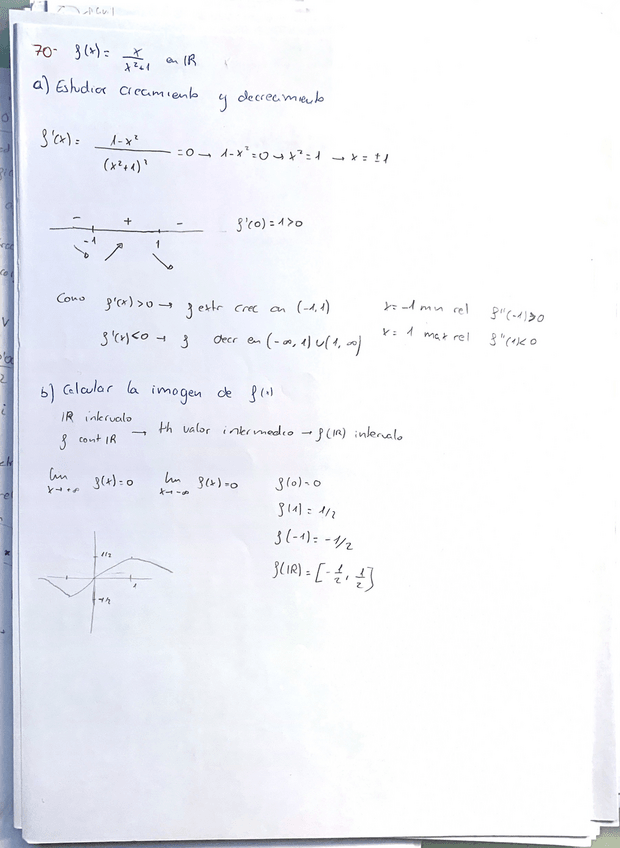 70- f(x) = x/(x²+1) en IR
a) Estudiar crecimiento y decrecimiento
f'(x) = (1-x²)/(x²+1)² = 0 → 1-x² = 0 → x² = 1 → x = ±1
- + -
-1 1
f'(0) = 1 > 0
Como f'(x) > 0 → f estr crec en (-1,1)
x = -1 min rel f''(-1) > 0
f'(x) < 0 → f decr en (-∞, 1) ∪ (1, ∞)
x = 1 max rel f''(1) < 0
b) Calcular la imagen de f(x)
IR intervalo
f cont IR → th valor intermedio → f(IR) intervalo
lim x→+∞ f(x) = 0 lim x→-∞ f(x) = 0 f(0) = 0
f(1) = 1/2
f(-1) = -1/2
f(IR) = [-1/2, 1/2]
1/2
1
-1/2